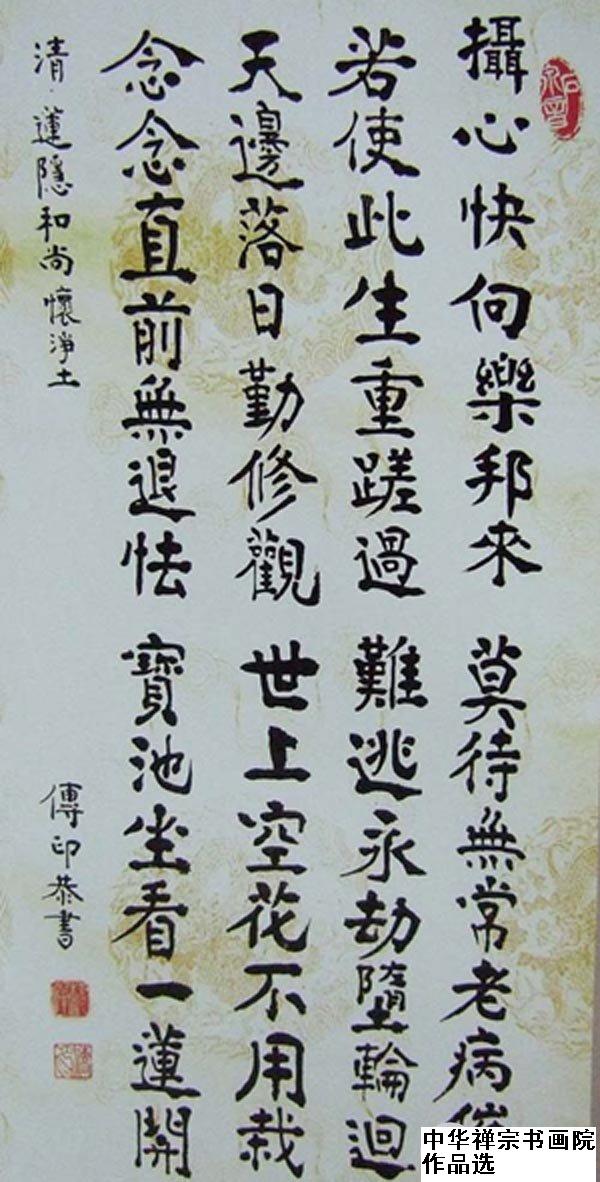 攝心快向樂邦來 莫待無常老病
若使此生重蹉過 難逃永劫墮輪迴
天邊落日勤修觀 世上空花不用栽
念念直前無退怯 寶池坐看一蓮開
清·蓮隱和尚懷淨土 傳印恭書
中华禅宗书画院
作品选